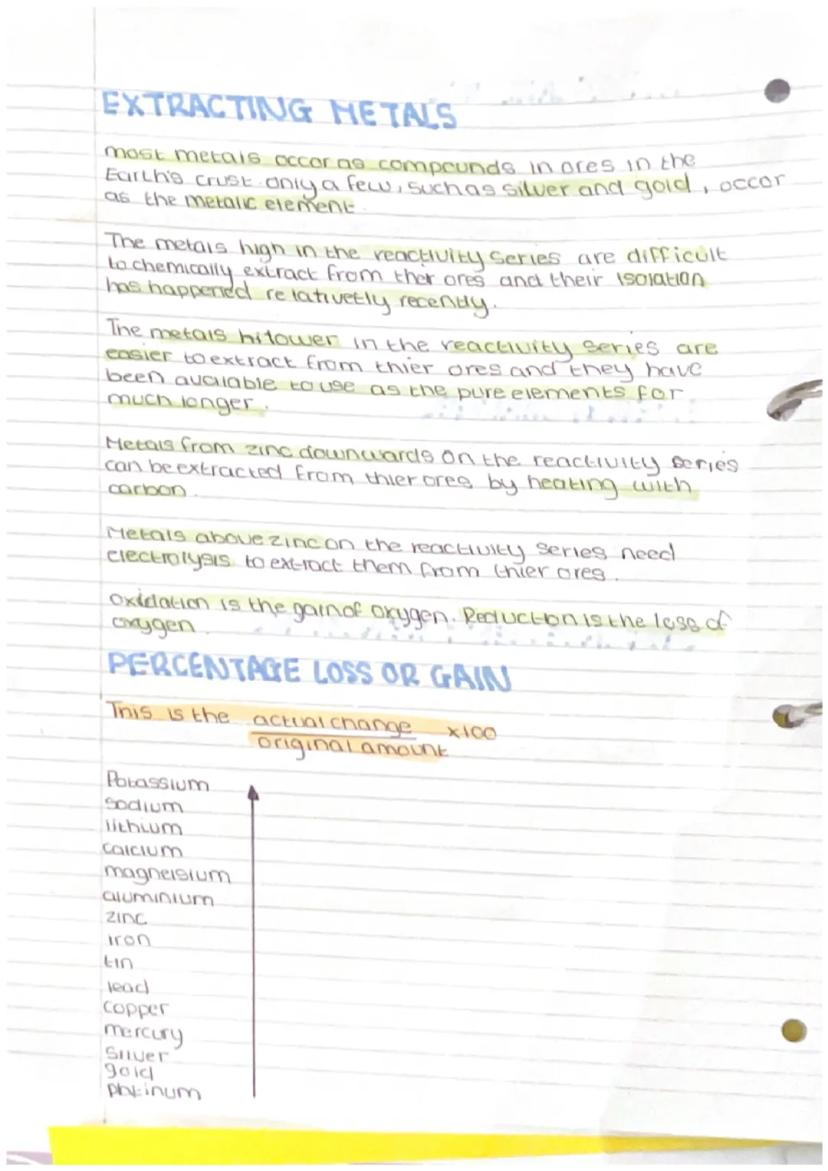 EXTRACTING METALS
most metals occor as compounds in ores in the
Earth's crust only a few, such as silver and gold, occor
as the metalic element.
The metals high in the reactivity series are difficult
to chemically extract from ther ores and their isolation
has happened relativetly recently.
The metals in lower in the reactivity series are
easier to extract from thier ores and they have
been avaiable to use as the pure elements for
much longer.
Metals from zinc downwards on the reactivity series
can be extracted from thier ores by heating with
carbon.
Metals above zinc on the reactivity series need
electrolysis to extract them from thier ores.
oxidation is the gain of oxygen. Reduction is the loss of
oxygen
PERCENTAGE LOSS OR GAIN
This is the actual change x100
original amount
Potassium
sodium
lithium
calcium
magneisium
aluminium
zinc
iron
tin
lead
copper
mercury
silver
gold
platinum